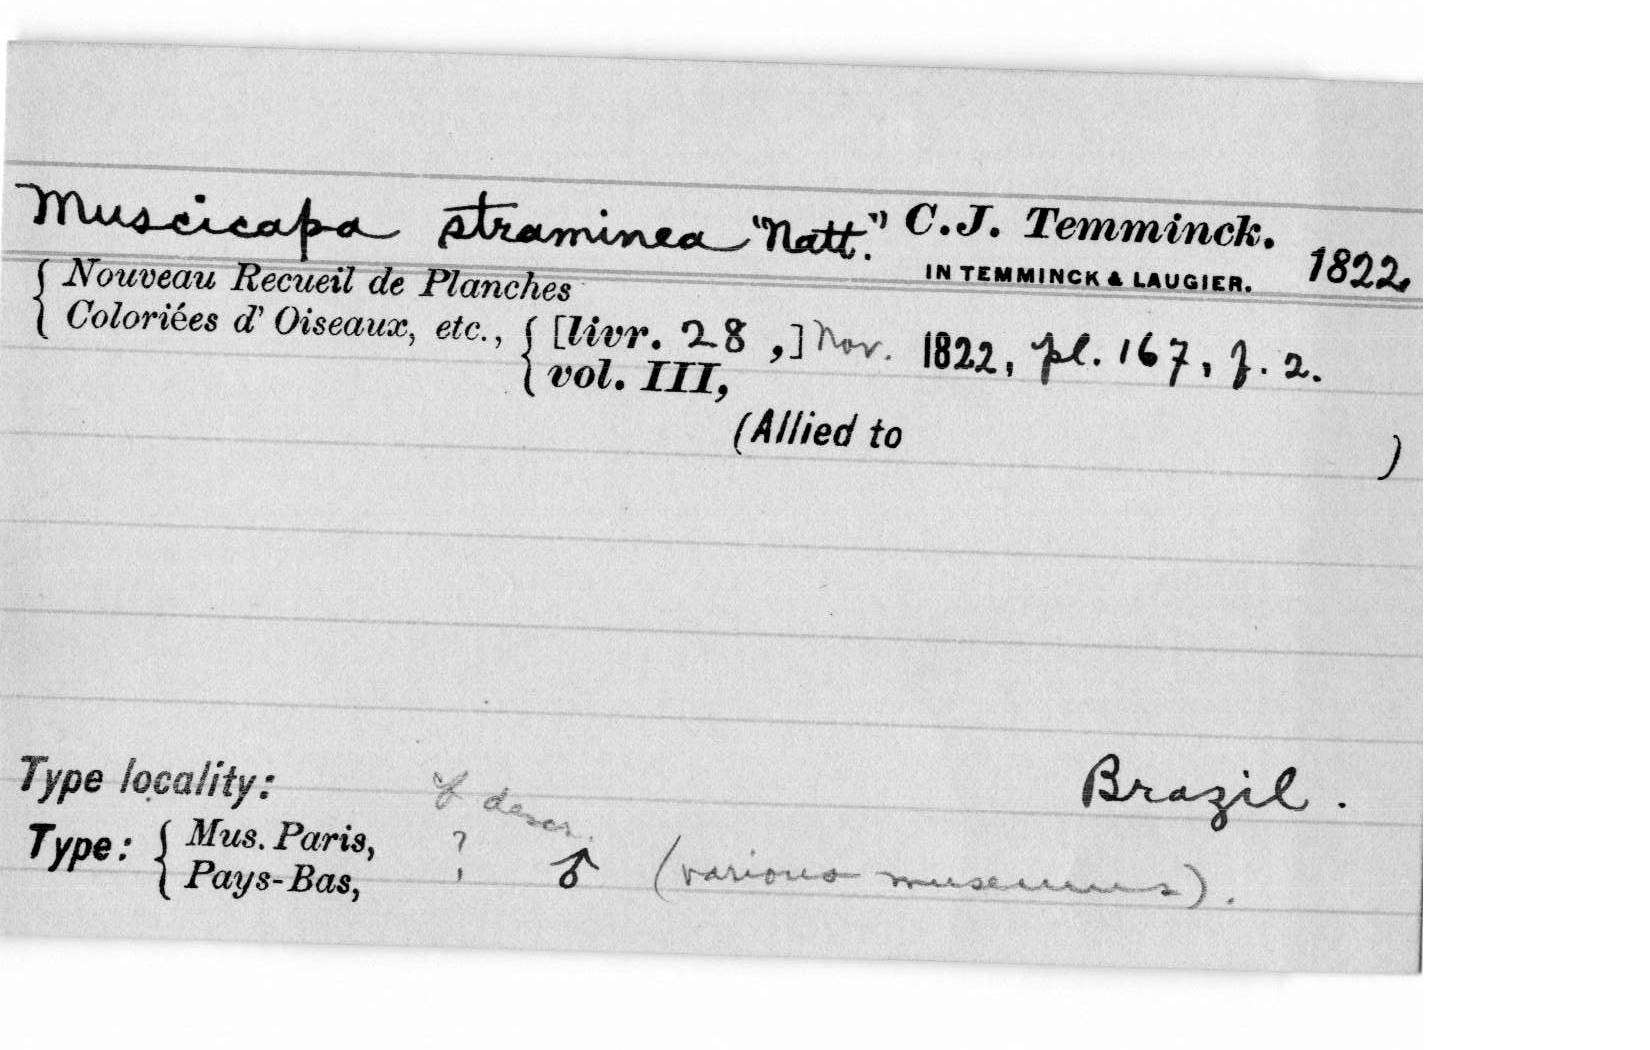 Muscicapa straminea "Natt." C.J. Temminck.
IN TEMMINCK & LAUGIER. 1822.
Nouveau Recueil de Planches
Coloriées d' Oiseaux, etc., [livr. 28 ,] Nov. 1822, pl. 167, f. 2.
vol. III,
(Allied to )
Type locality: Brazil.
descr.
Type: Mus. Paris, ?
Pays-Bas, ♂ (various museums).